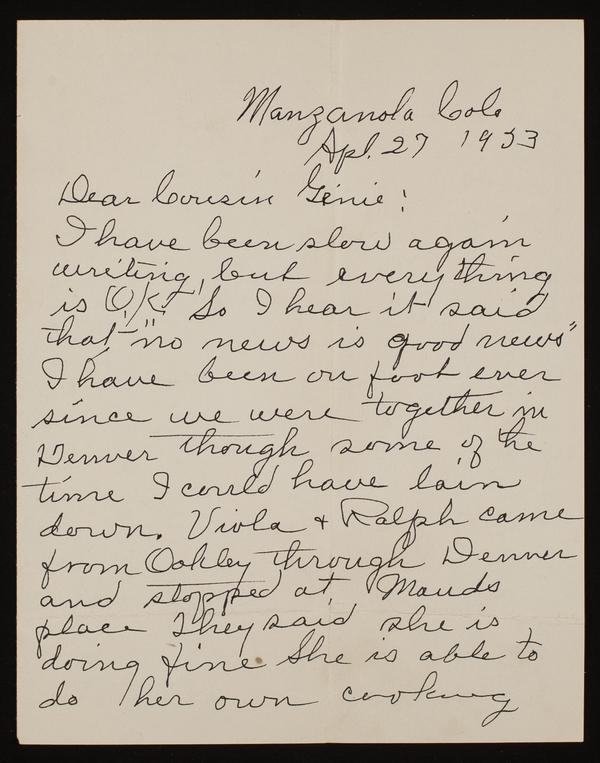 Manzanola Colo
Apl. 27 1933
Dear Cousin Genie!
I have been slow again
writing, but everything
is O.K. So I hear it said
that "no news is good news"
I have been on foot ever
since we were together in
Denver though some of the
time I could have lain
down. Viola + Ralph came
from Oakley through Denver
and stopped at Mauds
place They said she is
doing fine She is able to
do her own cooking